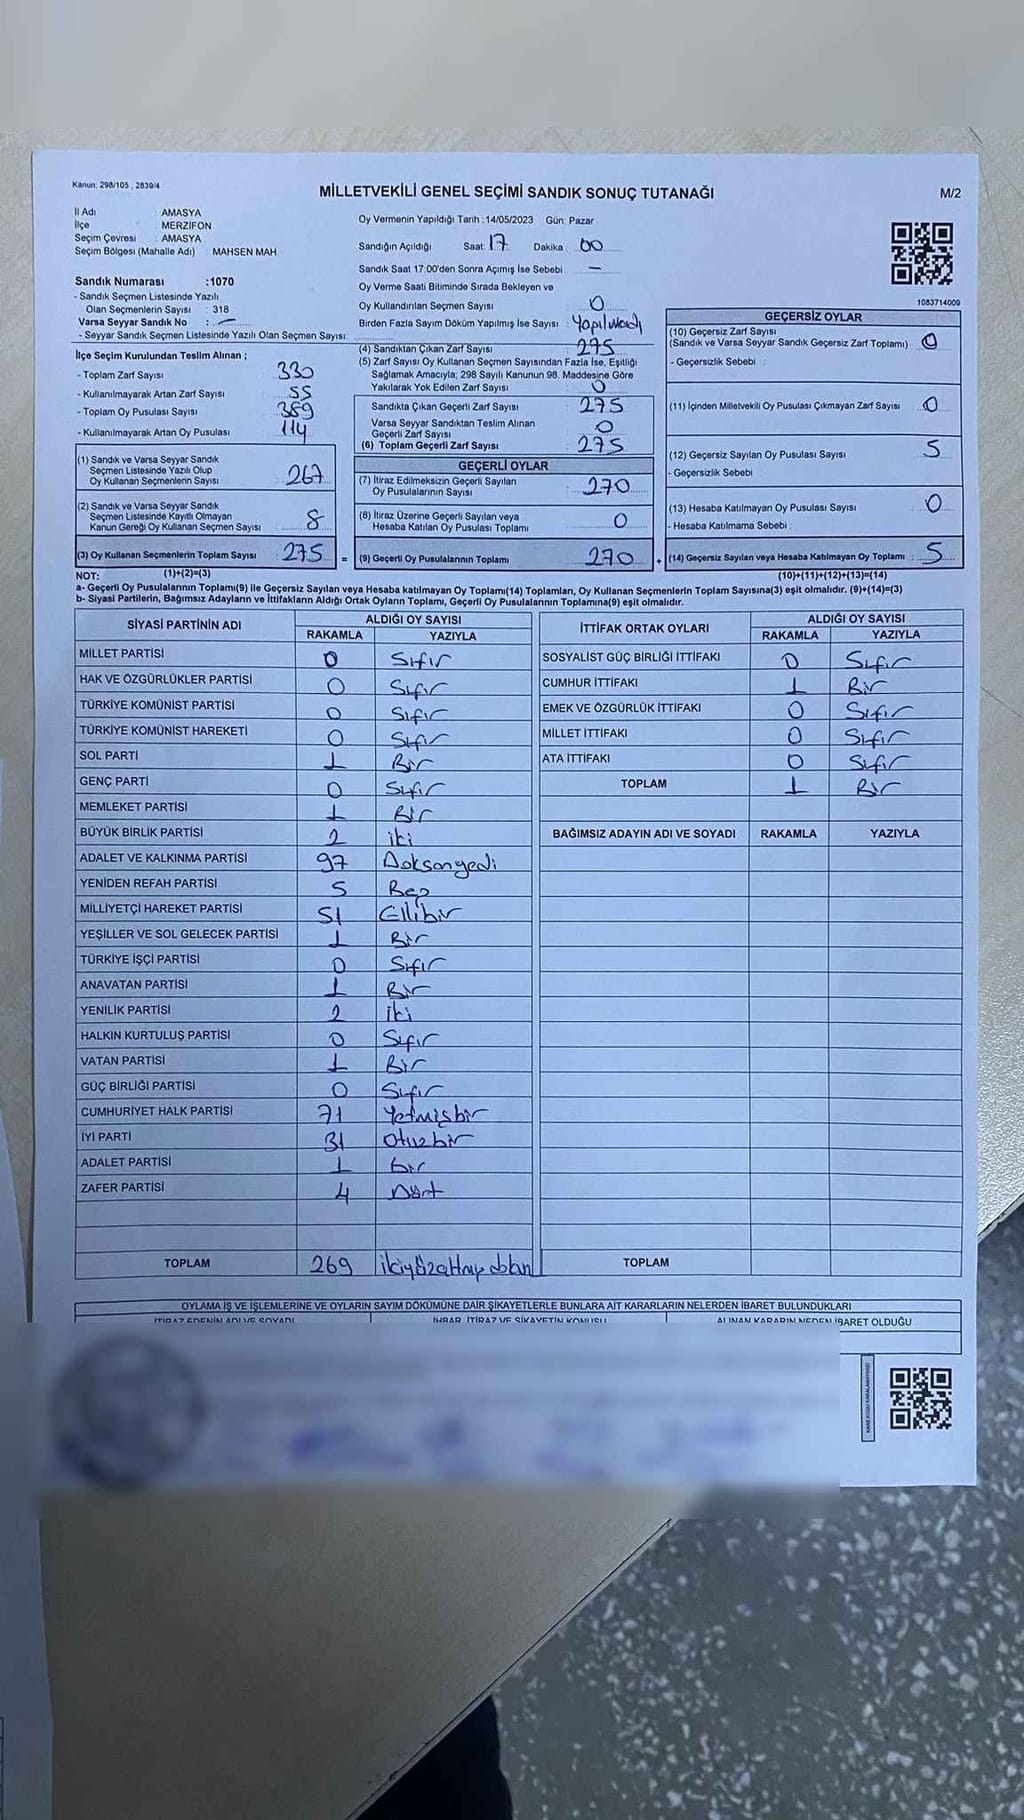 Kanun, 298/105 , 2839/4
MİLLETVEKİLİ GENEL SEÇİMİ SANDIK SONUÇ TUTANAĞI
M/2
İl Adı : AMASYA
İlçe : MERZİFON
Seçim Çevresi : AMASYA
Seçim Bölgesi (Mahalle Adı) : MAHSEN MAH
Sandık Numarası :1070
- Sandık Seçmen Listesinde Yazılı
Olan Seçmenlerin Sayısı : 318
Varsa Seyyar Sandık No : -
- Seyyar Sandık Seçmen Listesinde Yazılı Olan Seçmen Sayısı:
Oy Vermenin Yapıldığı Tarih :14/05/2023 Gün: Pazar
Sandığın Açıldığı Saat: 17 Dakika : 00
Sandık Saat 17:00'den Sonra Açımış İse Sebebi : -
Oy Verme Saati Bitiminde Sırada Bekleyen ve
Oy Kullandırılan Seçmen Sayısı : 0
Birden Fazla Sayım Döküm Yapılmış İse Sayısı : Yapılmadı
1083714009
İlçe Seçim Kurulundan Teslim Alınan ;
- Toplam Zarf Sayısı : 330
- Kullanılmayarak Artan Zarf Sayısı : 55
- Toplam Oy Pusulası Sayısı : 389
- Kullanılmayarak Artan Oy Pusulası : 114
(1) Sandık ve Varsa Seyyar Sandık
Seçmen Listesinde Yazılı Olup
Oy Kullanan Seçmenlerin Sayısı : 267
(2) Sandık ve Varsa Seyyar Sandık
Seçmen Listesinde Kayıtlı Olmayan
Kanun Gereği Oy Kullanan Seçmen Sayısı : 8
(3) Oy Kullanan Seçmenlerin Toplam Sayısı : 275 =
(1)+(2)=(3)
(4) Sandıktan Çıkan Zarf Sayısı : 275
(5) Zarf Sayısı Oy Kullanan Seçmen Sayısından Fazla İse, Eşitliği
Sağlamak Amacıyla; 298 Sayılı Kanunun 98. Maddesine Göre
Yakılarak Yok Edilen Zarf Sayısı : 0
Sandıkta Çıkan Geçerli Zarf Sayısı : 275
Varsa Seyyar Sandıktan Teslim Alınan
Geçerli Zarf Sayısı : 0
(6) Toplam Geçerli Zarf Sayısı : 275
GEÇERLİ OYLAR
(7) İtiraz Edilmeksizin Geçerli Sayılan
Oy Pusulalarının Sayısı : 270
(8) İtiraz Üzerine Geçerli Sayılan veya
Hesaba Katılan Oy Pusulası Toplamı : 0
(9) Geçerli Oy Pusulalarının Toplamı : 270 +
GEÇERSİZ OYLAR
(10) Geçersiz Zarf Sayısı
(Sandık ve Varsa Seyyar Sandık Geçersiz Zarf Toplamı) : 0
- Geçersizlik Sebebi :
(11) İçinden Milletvekili Oy Pusulası Çıkmayan Zarf Sayısı : 0
(12) Geçersiz Sayılan Oy Pusulası Sayısı : 5
- Geçersizlik Sebebi :
(13) Hesaba Katılmayan Oy Pusulası Sayısı : 0
- Hesaba Katılmama Sebebi :
(14) Geçersiz Sayılan veya Hesaba Katılmayan Oy Toplamı : 5
(10)+(11)+(12)+(13)=(14)
NOT:
a- Geçerli Oy Pusulalarının Toplamı(9) ile Geçersiz Sayılan veya Hesaba katılmayan Oy Toplamı(14) Toplamları, Oy Kullanan Seçmenlerin Toplam Sayısına(3) eşit olmalıdır. (9)+(14)=(3)
b- Siyasi Partilerin, Bağımsız Adayların ve İttifakların Aldığı Ortak Oyların Toplamı, Geçerli Oy Pusulalarının Toplamına(9) eşit olmalıdır.
SİYASİ PARTİNİN ADI ALDIĞI OY SAYISI
RAKAMLA YAZIYLA
MİLLET PARTİSİ 0 Sıfır
HAK VE ÖZGÜRLÜKLER PARTİSİ 0 Sıfır
TÜRKİYE KOMÜNİST PARTİSİ 0 Sıfır
TÜRKİYE KOMÜNİST HAREKETİ 0 Sıfır
SOL PARTİ 1 Bir
GENÇ PARTİ 0 Sıfır
MEMLEKET PARTİSİ 1 Bir
BÜYÜK BİRLİK PARTİSİ 2 iki
ADALET VE KALKINMA PARTİSİ 97 Doksanyedi
YENİDEN REFAH PARTİSİ 5 Beş
MİLLİYETÇİ HAREKET PARTİSİ 51 Ellibir
YEŞİLLER VE SOL GELECEK PARTİSİ 1 Bir
TÜRKİYE İŞÇİ PARTİSİ 0 Sıfır
ANAVATAN PARTİSİ 1 Bir
YENİLİK PARTİSİ 2 iki
HALKIN KURTULUŞ PARTİSİ 0 Sıfır
VATAN PARTİSİ 1 Bir
GÜÇ BİRLİĞİ PARTİSİ 0 Sıfır
CUMHURİYET HALK PARTİSİ 71 Yetmişbir
İYİ PARTİ 31 Otuzbir
ADALET PARTİSİ 1 bir
ZAFER PARTİSİ 4 Dört
TOPLAM 269
İTTİFAK ORTAK OYLARI ALDIĞI OY SAYISI
RAKAMLA YAZIYLA
SOSYALİST GÜÇ BİRLİĞİ İTTİFAKI 0 Sıfır
CUMHUR İTTİFAKI 1 Bir
EMEK VE ÖZGÜRLÜK İTTİFAKI 0 Sıfır
MİLLET İTTİFAKI 0 Sıfır
ATA İTTİFAKI 0 Sıfır
TOPLAM 1 Bir
BAĞIMSIZ ADAYIN ADI VE SOYADI RAKAMLA YAZIYLA
TOPLAM
OYLAMA İŞ VE İŞLEMLERİNE VE OYLARIN SAYIM DÖKÜMÜNE DAİR ŞİKAYETLERLE BUNLARA AİT KARARLARIN NELERDEN İBARET BULUNDUKLARI
İTİRAZ EDENİN ADI VE SOYADI İHBAR, İTİRAZ VE ŞİKAYETİN KONUSU ALINAN KARARIN NEDEN İBARET OLDUĞU